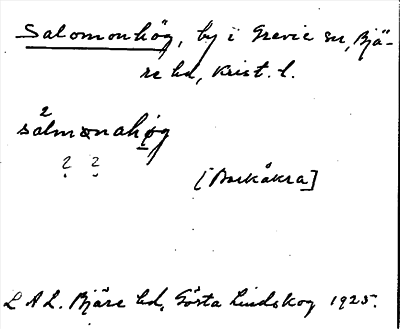 Salomonhög, by i Grevie sn, Bjä-
re hd, Krist. l.
2
sålmonahög
? ?
[Barkåkra]
L A L. Bjäre hd, Gösta Lindskog 1925.